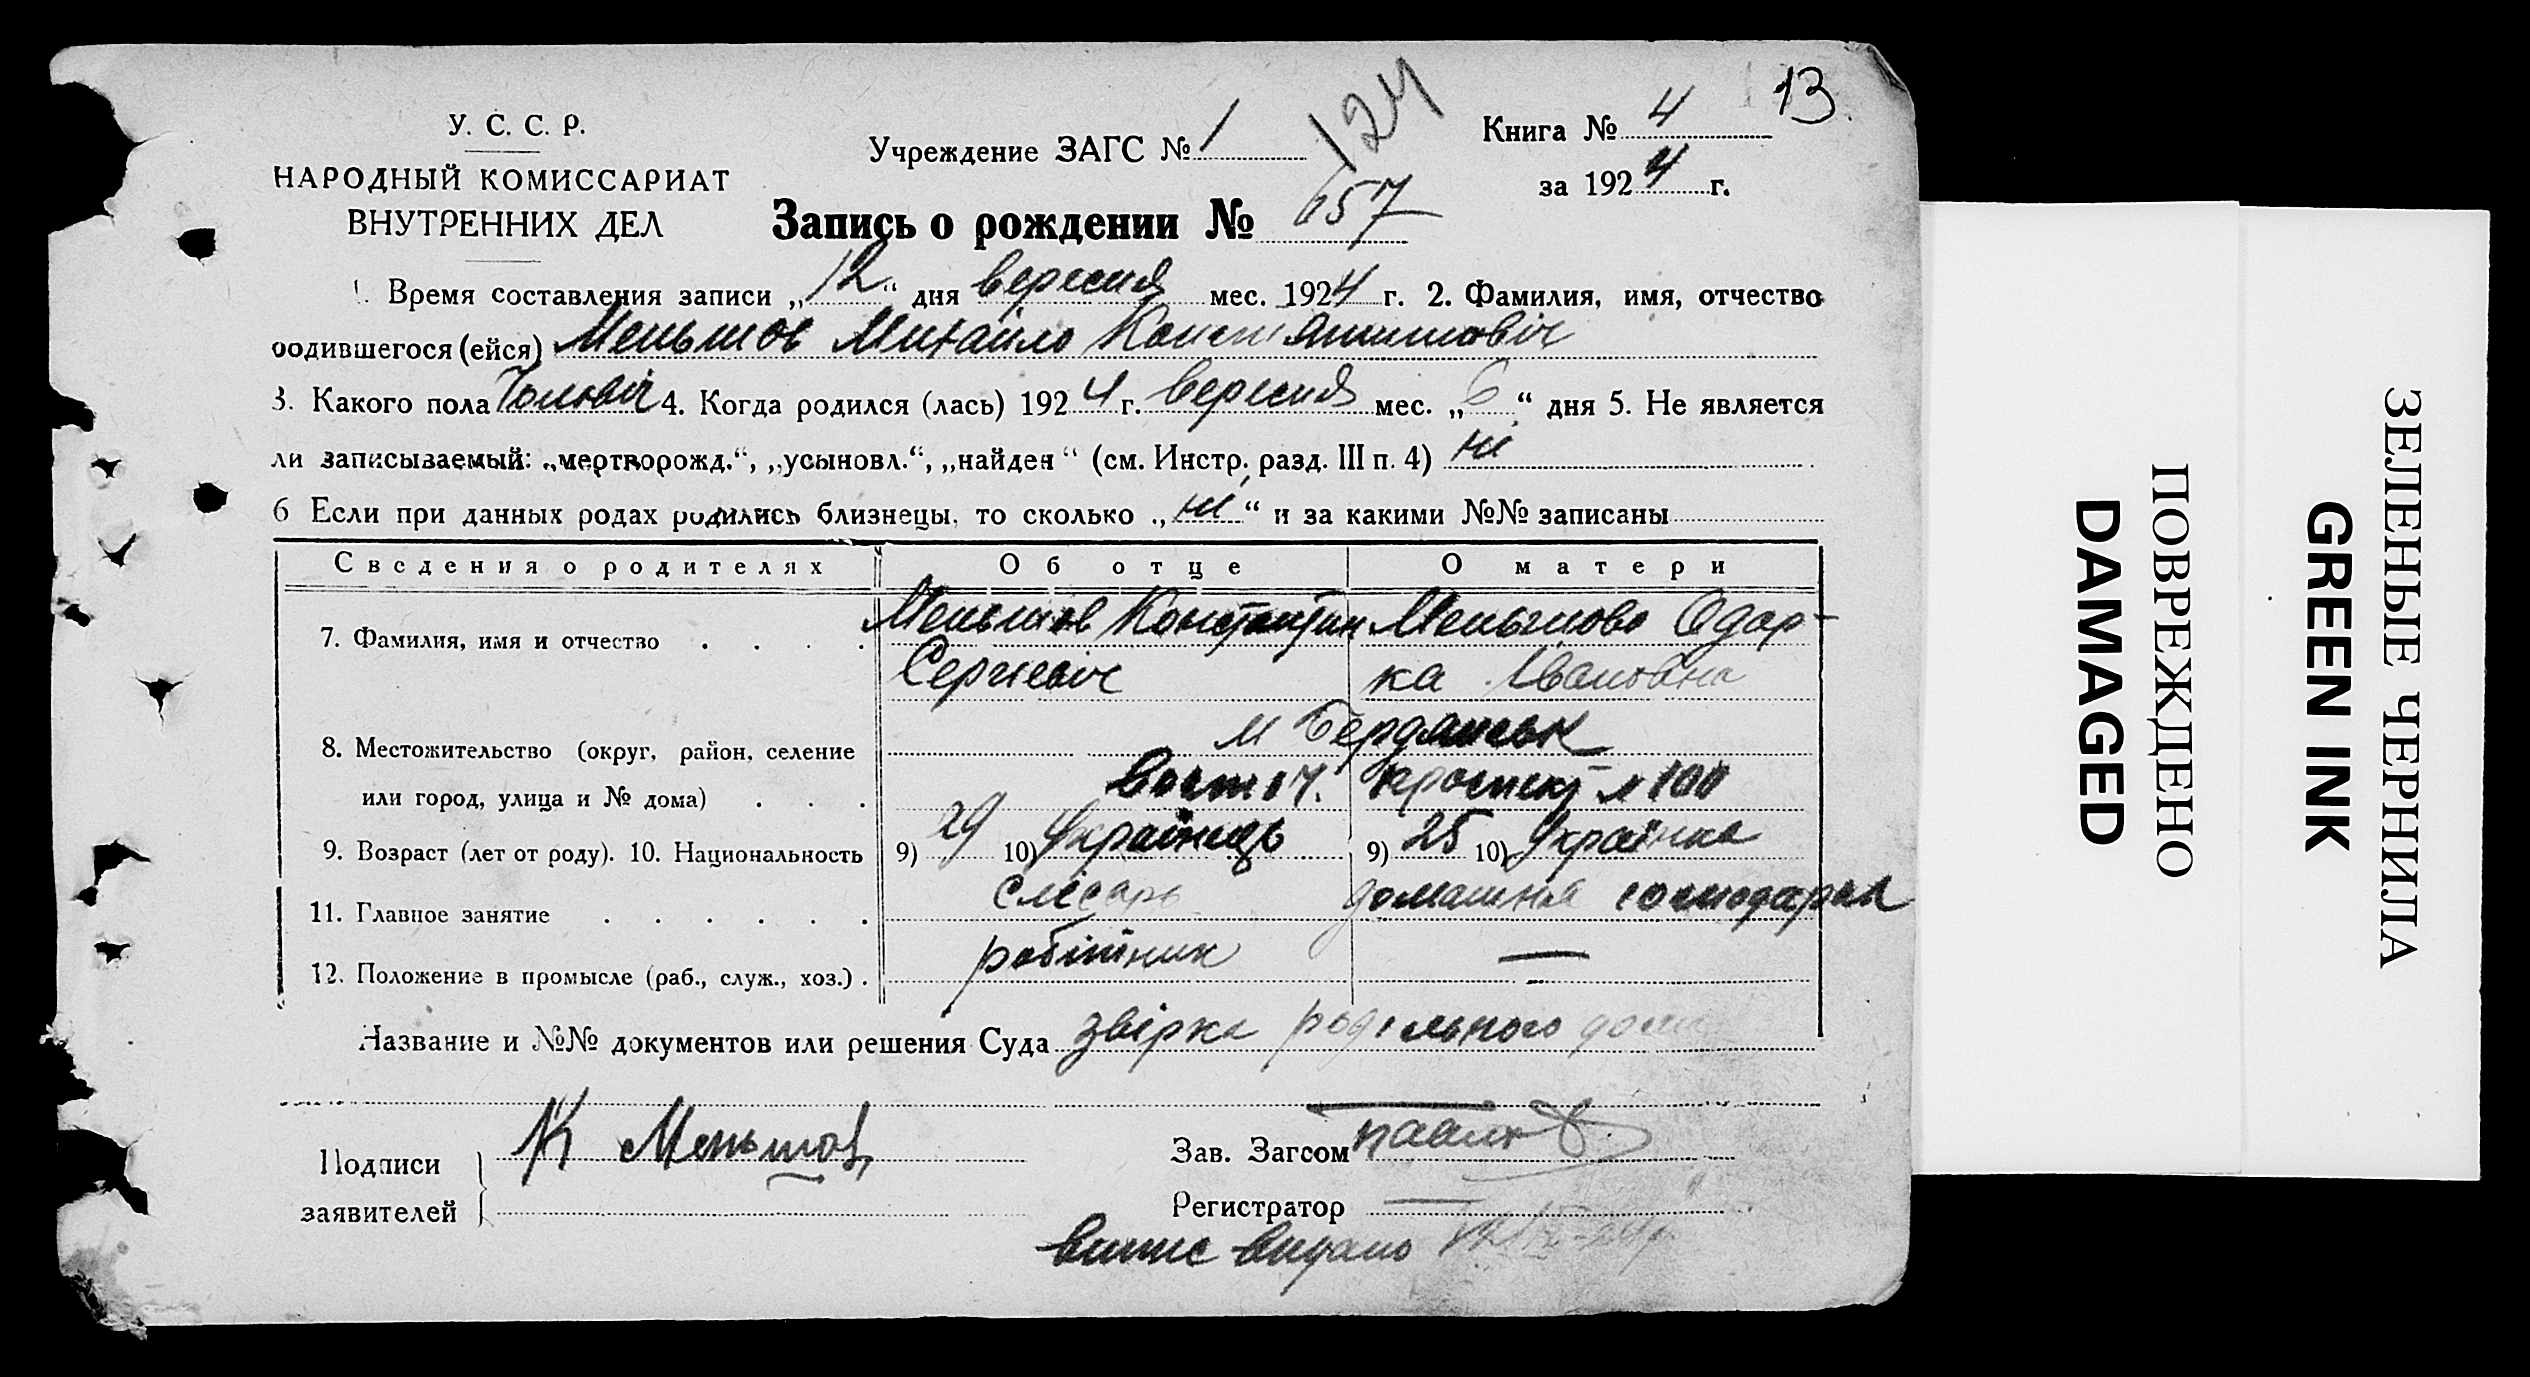 13
У. С. С. Р.
НАРОДНЫЙ КОМИССАРИАТ
ВНУТРЕННИХ ДЕЛ
Учреждение ЗАГС № 1
124
Книга № 4
за 1924 г.
Запись о рождении № 657
1. Время составления записи „12“ дня вересня мес. 1924 г. 2. Фамилия, имя, отчество
родившегося (ейся) Меньшов Михайло Константинович
3. Какого пола Чоловіч 4. Когда родился (лась) 1924 г. вересня мес. „6“ дня 5. Не является
ли записываемый: „мертворожд.“, „усыновл.“, „найден“ (см. Инстр. разд. III п. 4) ні
6 Если при данных родах родились близнецы, то сколько „ні“ и за какими №№ записаны
Сведения о родителях Об отце О матери
7. Фамилия, имя и отчество Меньшов Константин Меньшова Одар-
Сергієвіч ка Івановна
м Бердянськ
8. Местожительство (округ, район, селение
Восточ. проспект № 100
или город, улица и № дома)
9. Возраст (лет от роду). 10. Национальность 9) 29 10) Українець 9) 25 10) Українка
11. Главное занятие слісарь домашня господарка
12. Положение в промысле (раб., служ., хоз.) робітник —
Название и №№ документов или решения Суда звірка родільного дома
Подписи
заявителей
К Меньшов
Зав. Загсом
Регистратор —
випис видано
ПОВРЕЖДЕНО
DAMAGED
ЗЕЛЕНЫЕ ЧЕРНИЛА
GREEN INK